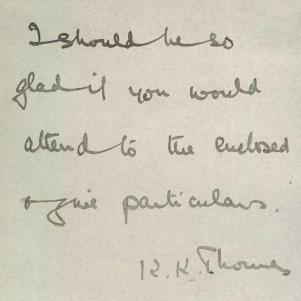 I should be so
glad if you would
attend to the enclosed
& give particulars.
K. K. Thomas